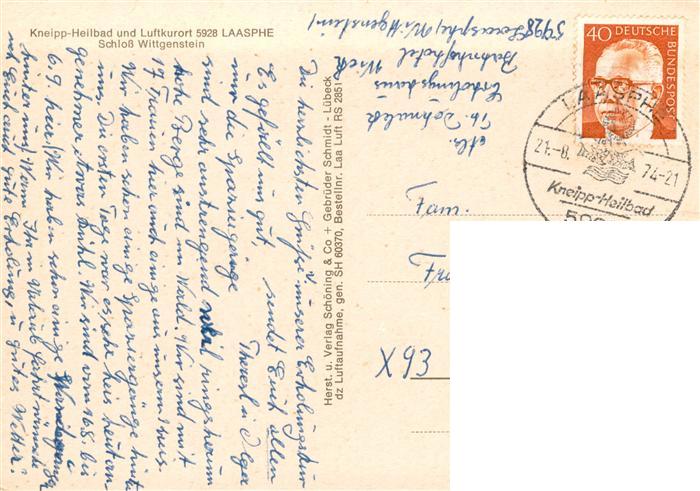 Kneipp-Heilbad und Luftkurort 5928 LAASPHE
Schloß Wittgenstein
Die herzlichsten Grüße unserer Erholungskur
sendet Euch allen
Es gefällt uns gut.
nur die Spaziergänge
sind sehr anstrengend weil ringsherum
hohe Berge sind m. Wald. Wir sind mit
17 Frauen hier und einige aus unserem Kreis.
Wir haben schon einige Spaziergänge hinter
uns. Die ersten Tage war es sehr heiß heute an-
genehmer, etwas kühl. Wir sind vom 16.8. bis
6.9. hier. Wir haben schon einige
hinter uns. Wenn Ihr in Urlaub fahrt wünsche
ich Euch auch gute Erholung u. gutes Wetter.
Herst. u. Verlag Schöning & Co + Gebrüder Schmidt - Lübeck
dz Luftaufnahme, gen. SH 60370, Bestellnr. Laa Luft RS 2851
Abs.
Erholungshaus
Bahnhotel
5928 Laasphe/Wittgenstein
40 DEUTSCHE
BUNDESPOST
LAASPHE
21.-8. 74-21
Kneipp-Heilbad
Fam.
X 93